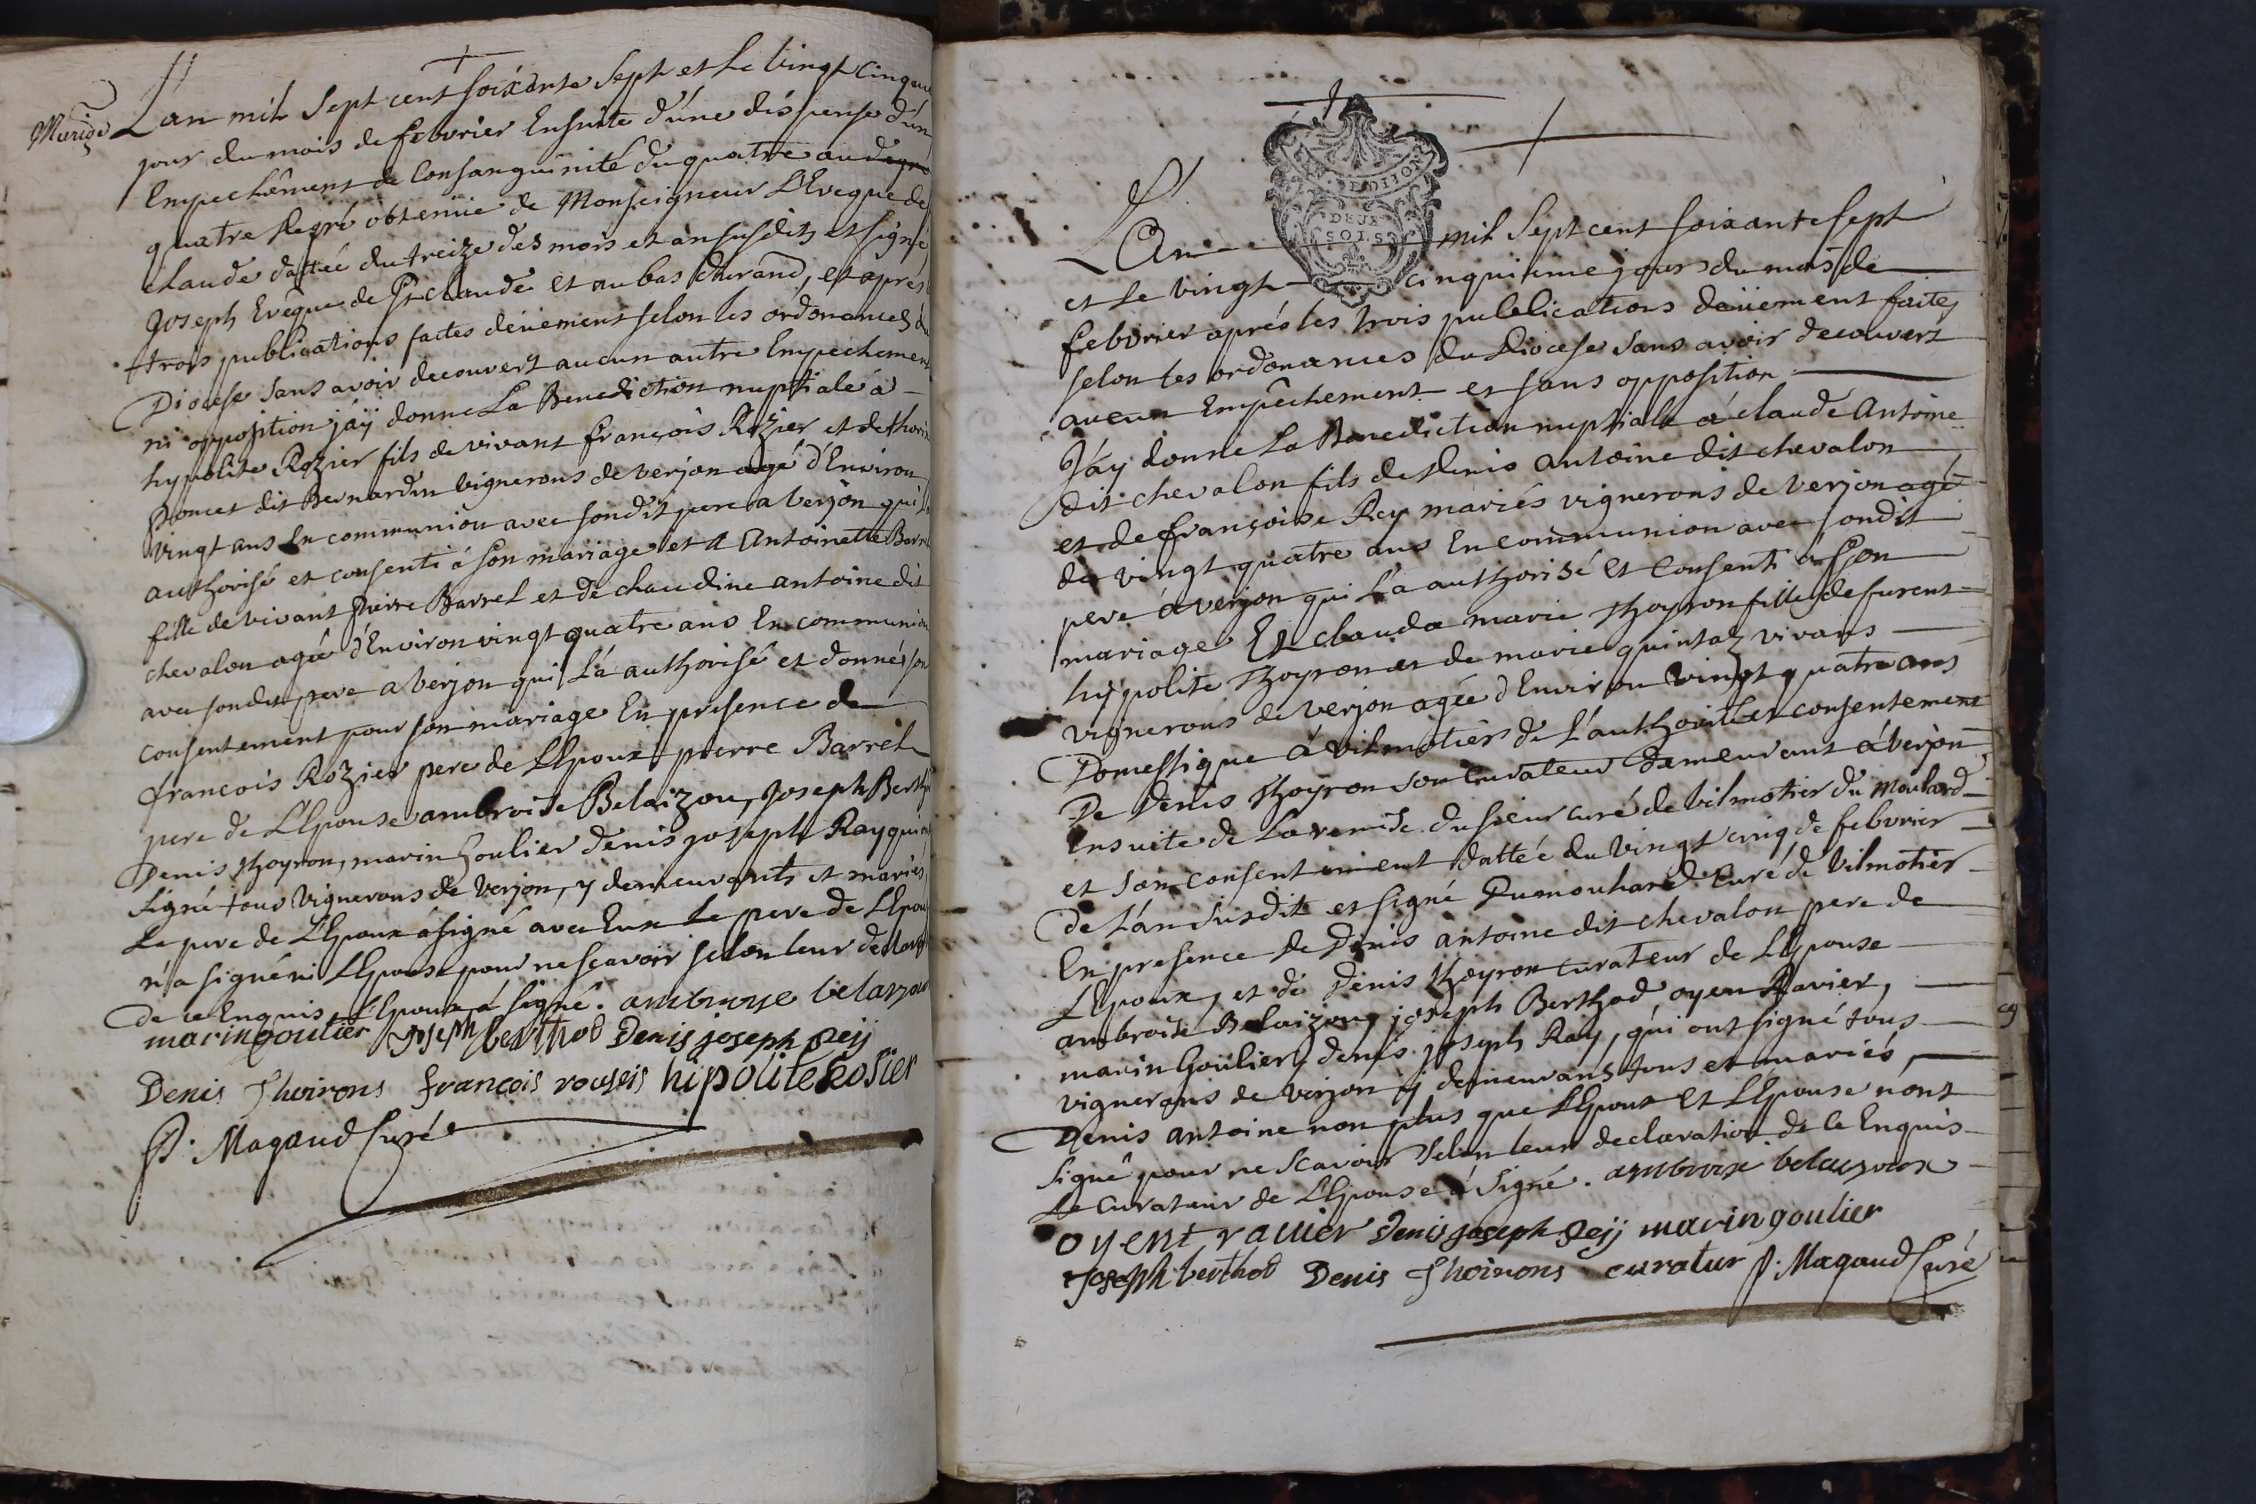 Mariage
L'an mil sept cent soixante sept et le vingt cinquie
jour du mois de febvrier Ensuite d'une dispense d'un
Empechêment de Consanguinité du quatre au degré
quatre degré obtenüe de Monseigneur L'Eveque de
claude dattée du treize des mois et an susdits et signé
joseph Evêque de St claude Et au bas durand, et aprés
trois publications faites deüement selon les ordonances du
Diocese sans avoir decouvert aucun autre Empechement
ni opposition j'aÿ donné La Benediction nuptiale á
hypolite Rozier fils de vivant françois Rozier et de
poncet dit Bernardin vignerons de verjon agé d'Environ
vingt ans En communion avec sondit pere a verjon qui l'a
authorisé et consenti á son mariage et A Antoinette Barrel
fille de vivant pierre Barrel et de claudine antoine dit
chevalon agée d'Environ vingt quatre ans En communion
avec sondit pere a verjon qui L'a authorisé et donné son
consentement pour son mariage En presence de
françois Rozier pere de L'Epoux pierre Barrel
pere de L'Epouse ambroise Belaizon, joseph Berthod
Denis thoyron, marin goulier denis joseph Ray qui ont
signé tous vignerons de verjon, y demeurants et mariés,
Le pere de L'Epoux á signé avec Eux Le pere de L'Epouse
n'a signé ni L'Epouse pour ne sçavoir selon leur declaration
de ce Enquis L'Epoux á signé. ambroise belaizon
marin goulier joseph berthod Denis joseph Reÿ
Denis Thoirons francois rousies hipolite Rosier
P. Magaud Curé
DE DIJON
DEUX
SOLS
L'An mil sept cent soixante sept
et le vingt cinquiéme jour du mois de
febvrier aprés les trois publications deüement faites
selon les ordonances du Diocese sans avoir decouvert
aucun Empêchement et sans opposition
J'ay donné La Benediction nuptiale á claude Antoine
dit chevalon fils de denis antoine dit chevalon
et de françoise Rey mariés vignerons de verjon agé
de vingt quatre ans En communion avec sondit
pere á verjon qui L'a authorisé et Consenti á son
mariage Et clauda marie thoyron fille de furent
hypolite thoyron et de marie quintaz vivans
vignerons de verjon agée d'Environ vingt quatre ans
Domestique á vilmotier de L'authorité et consentement
De denis thoyron son Curateur demeurant á verjon
Ensuite de La remise du sieur curé de vilmotier du moulard
et son consentement dattée du vingt cinq de febvrier
de L'an susdit et signé Dumouhard Curé de vilmotier
En presence de Denis antoine dit chevalon pere de
L'Epoux, et de Denis thoyron curateur de L'Epouse
ambroise Belaizon, joseph Berthod, oyen Ravier,
marin Goulier, denis joseph Ray, qui ont signé tous
vignerons de verjon y demeurans tous et mariés,
Denis antoine non plus que L'Epoux Et L'Epouse n'ont
signé pour ne scavoir selon leur declaration de ce Enquis
Le Curateur de L'Epouse á signé. ambroise belaizon
oyent ravier Denis joseph Reÿ marin goulier
Joseph berthod Denis Thoirons curatur P. Magaud Curé